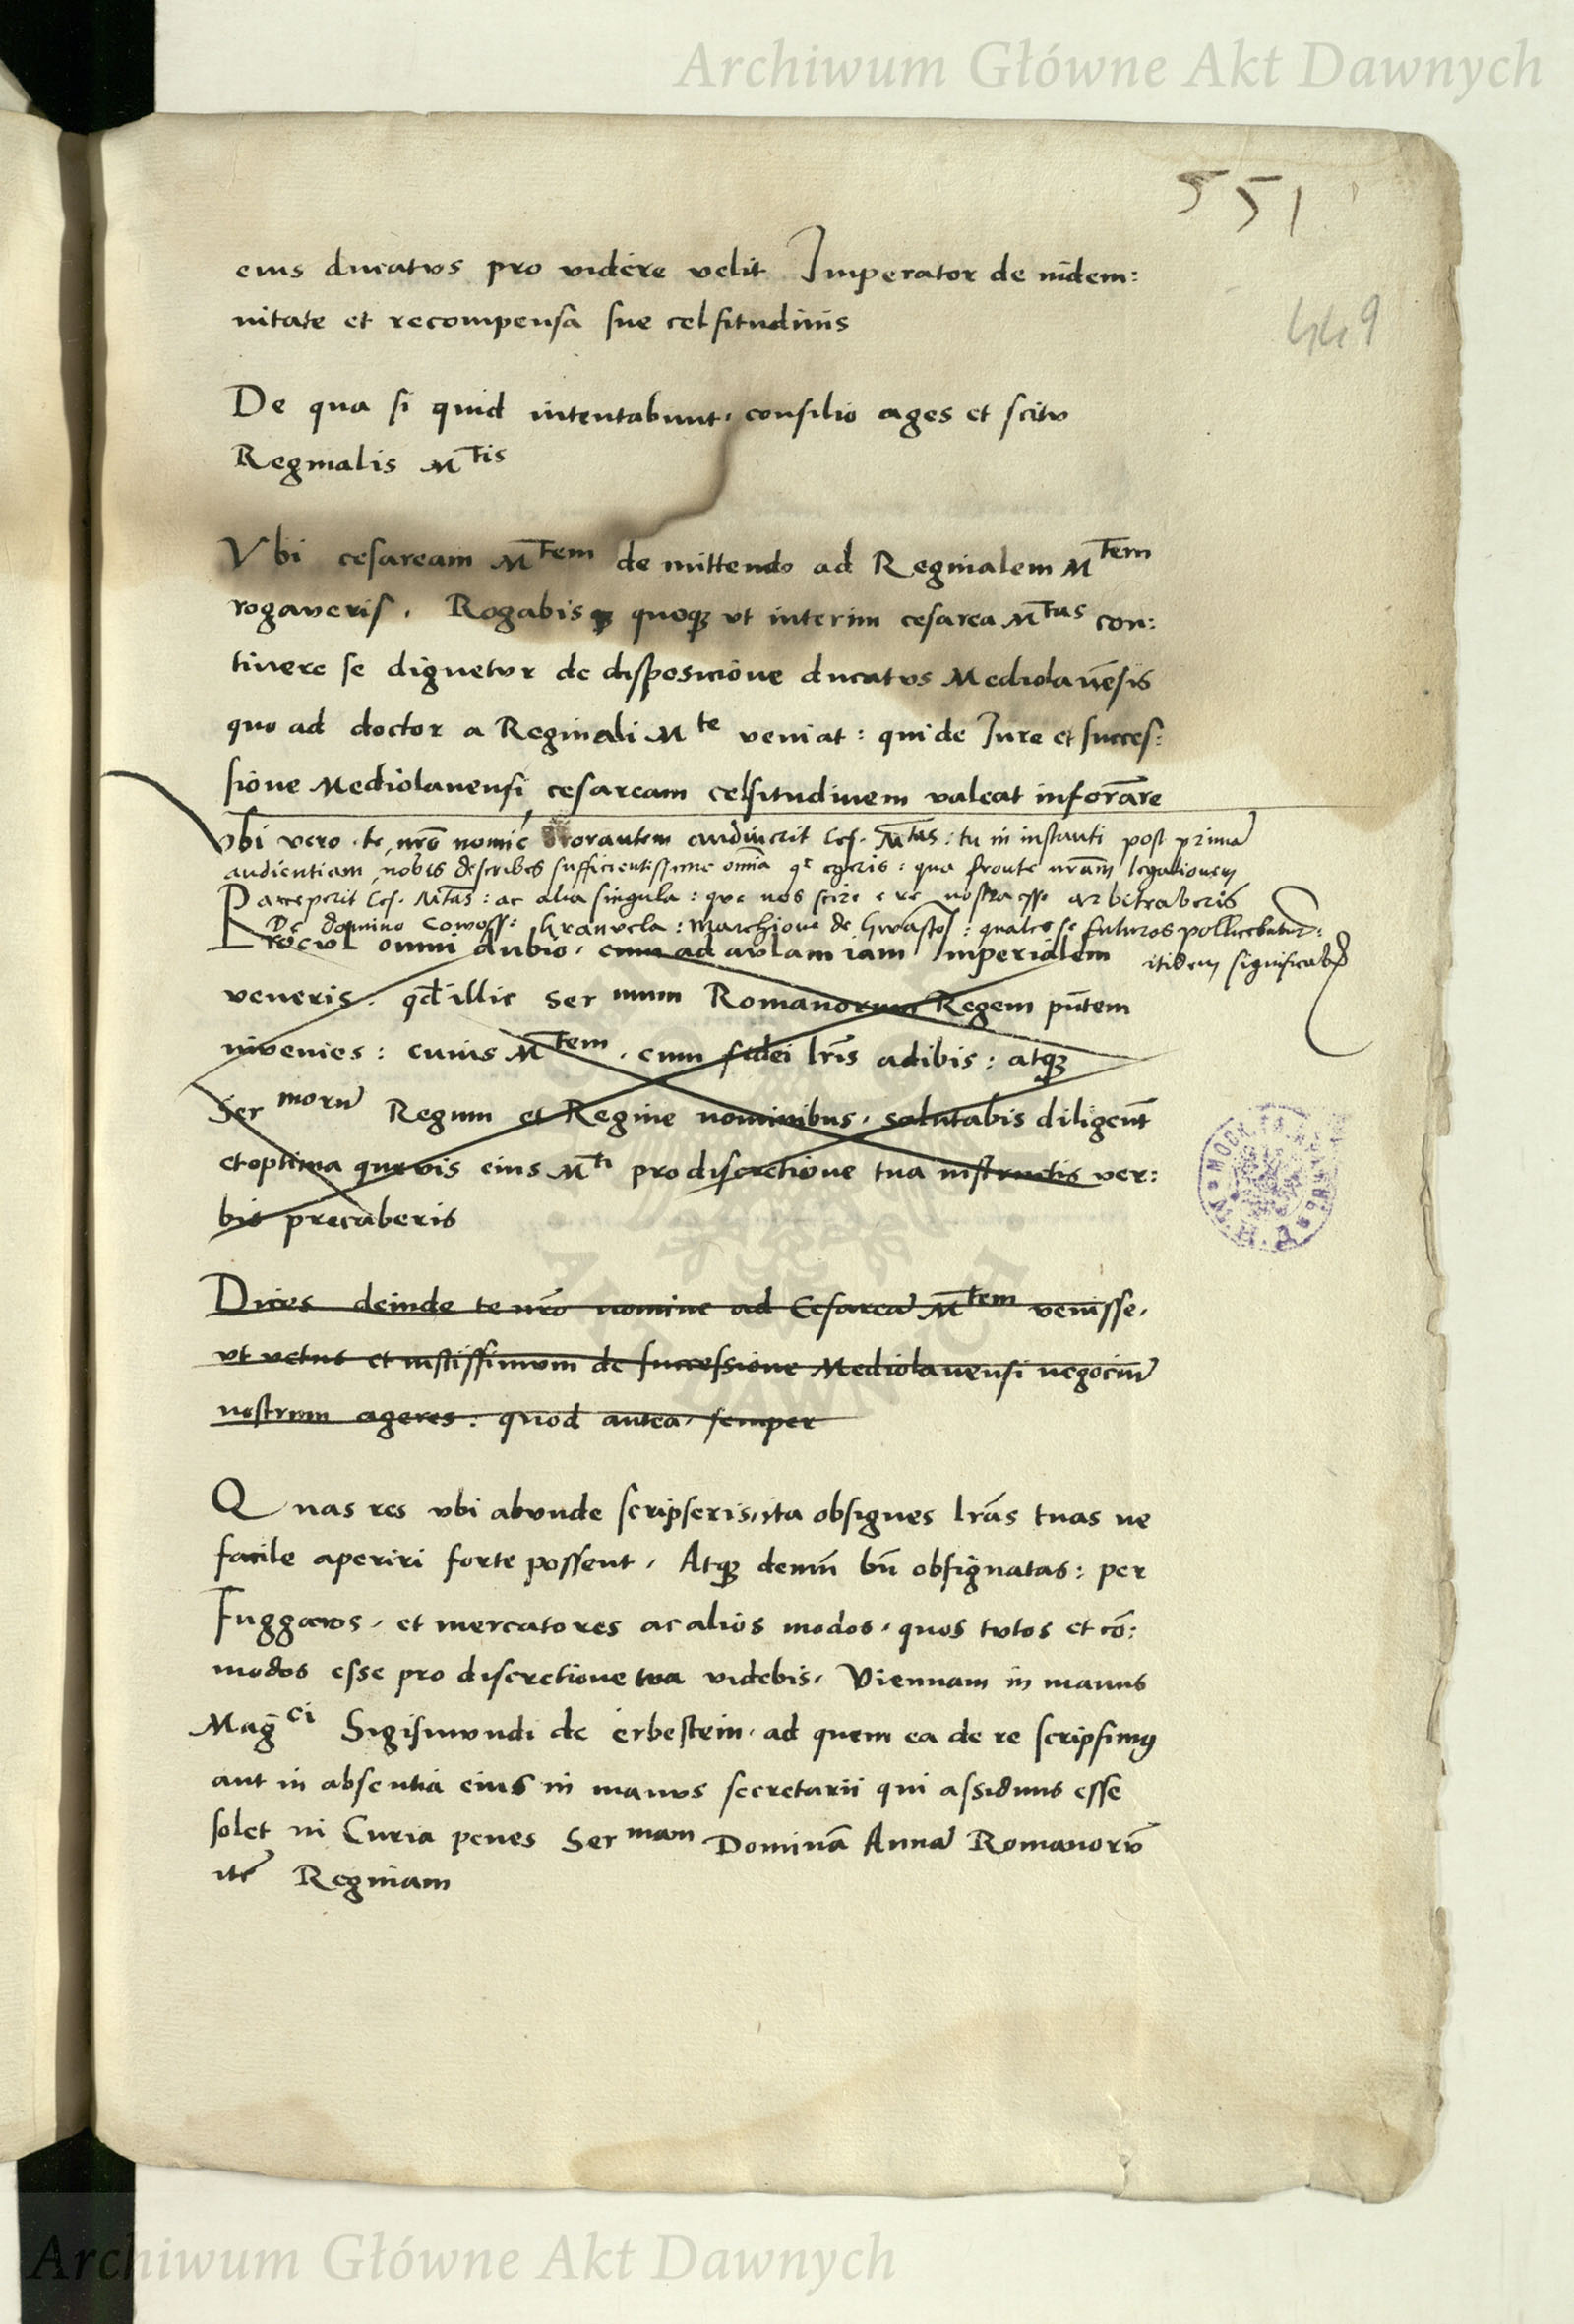 Archiwum Główne Akt Dawnych
551
449
eius ducatus pro videre velit Imperator de indem:
nitate et recompensa sue celsitudinis
De qua si quid intentabunt, consilio ages et scitu
Reginalis Mtis
Vbi cesaream Mtem de mittendo ad Reginalem Mtem
rogaveris. Rogabis quoque vt interim cesarea Mtas con:
tinere se dignetur de disposicione ducatus Mediolanēsis
quo ad doctor a Reginali Mte veniat: qui de Iure et succes:
sione Mediolanensi cesaream celsitudinem valeat informare
Vbi vero te nrō nomiē orantem audiuerit Ces. Mtas: tu in instanti post primā
audientiam nobis describes sufficientissime omīa qe egeris: qua fronte nrām legationem
acceperit Ces. Mtas: ac alia singula: que nos scire e re nostra esse arbitraberis
De domino Covoss: Granvela: Marchione de Gwasto: quales se futuros pollicebutur:
itidem significabis
Procul omni dubio, cum ad aulam iam Imperialem
veneris. qd illic Ser mum Romanorum Regem pūtem
invenies: cuius Mtem, cum fidei lrīs adibis: atque
Ser morū Regum et Regine nominibus, salutabis diligent
et optima quevis eius Mti pro discretione tua instructis ver:
bis precaberis
Dices deinde te nrō nomine ad Cesareā Mtem venisse,
vt vetus et iustissimum de successione Mediolanensi negociū
nostrum ageres: quod antea, semper
Quas res vbi abunde scripseris, ita obsignes lrās tuas ne
facile aperiri forte possent, Atque demū bn̄ obsignatas: per
Fuggaros, et mercatores ac alios modos, quos tutos et cō:
modos esse pro discretione tua videbis, Viennam in manus
Magci Sigismundi de erbestein, ad quem ea de re scripsimus
aut in absentia eius in manus secretarii qui assiduus esse
solet in Curia penes Ser mam Dominā Annā Romanorū
itē Reginam
Archiwum Główne Akt Dawnych